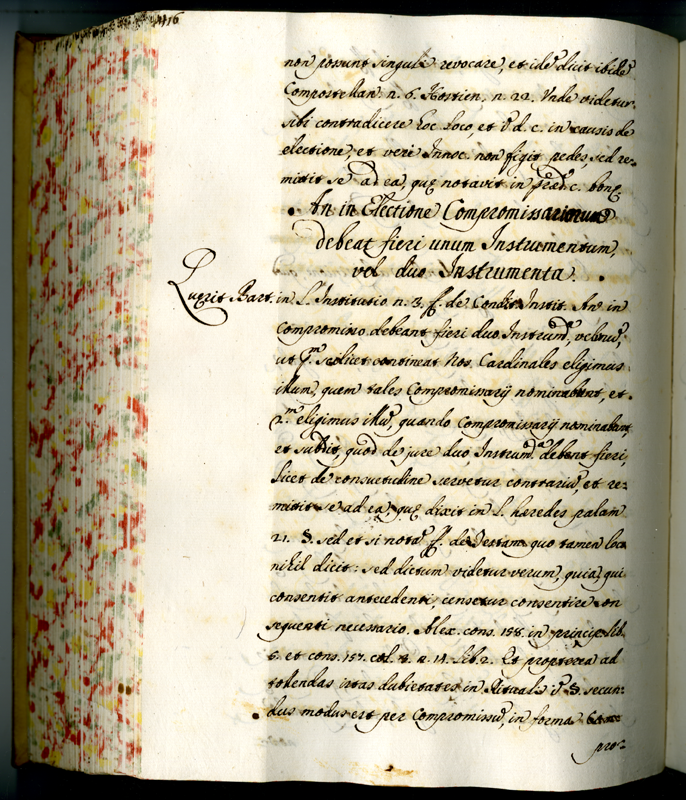 116
non possunt singuli revocare, et idẽ dicit ibidẽ
Compostellan. n. 6. Hostien. n. 22. Unde videtur
sibi contradicere hoc loco, et d. c. in causis de
electione, et veri Innoc. non figit pedes, sed re=
mittit se ad ea, quę notavit in præd. c. bonę
An in Electione Compromissariorum
debeat fieri unum Instrumentum,
vel duo Instrumenta.
Quęrit Bart. in L. Institutio n. 3. ff. de Condit. Instit. An in
compromisso debeant fieri duo Instrum.ᵃ, vel unũ,
ut p.ᵐ scilicet contineat Nos Cardinales eligimus
illum, quem tales Compromissarij nominabunt, et
2.ᵐ eligimus illũ, quando Compromissarij nominabunt
et subdit, quod de jure duo Instrum.ᵃ debent fieri,
licet de consuetudine servetur contrariũ, et re=
mittit se ad ea, quę dixit in L. heredes palam
21. §. sed et si notã ff. de Testam. quo tamen loco
nihil dicit: sed dictum videtur verum, quia, qui
consentit antecedenti, censetur consentire con
sequenti necessario. Alex. cons. 158. in princip. lib.
5. et cons. 157. col. n. 14. lib. 2. Et propterea ad
tollendas istas dubietates in Rituali §. secun=
dus modus est per Compromissũ, in forma
pro=